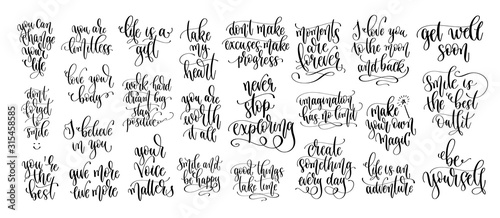 you can
change
your
life
don't
forget
to
smile
you're
the
best
you are
limitless
love your
body
I believe
in you
give more
live more
life is a
gift
work hard
dream big
stay
positive
your
voice
matters
take
my
heart
you are
worth
it all
smile and
be happy
don't make
excuses make
progress
never
stop
exploring
good things
take time
moments
are
forever
imagination
has no limit
create
something
every day
I love you
to the moon
and back
make
your own
magic
life is an
adventure
get well
soon
smile is
the best
outfit
be
yourself
Adobe Stock | #315458585